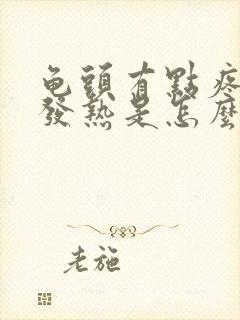 龟頭有點疼
發熱是怎麼
老施